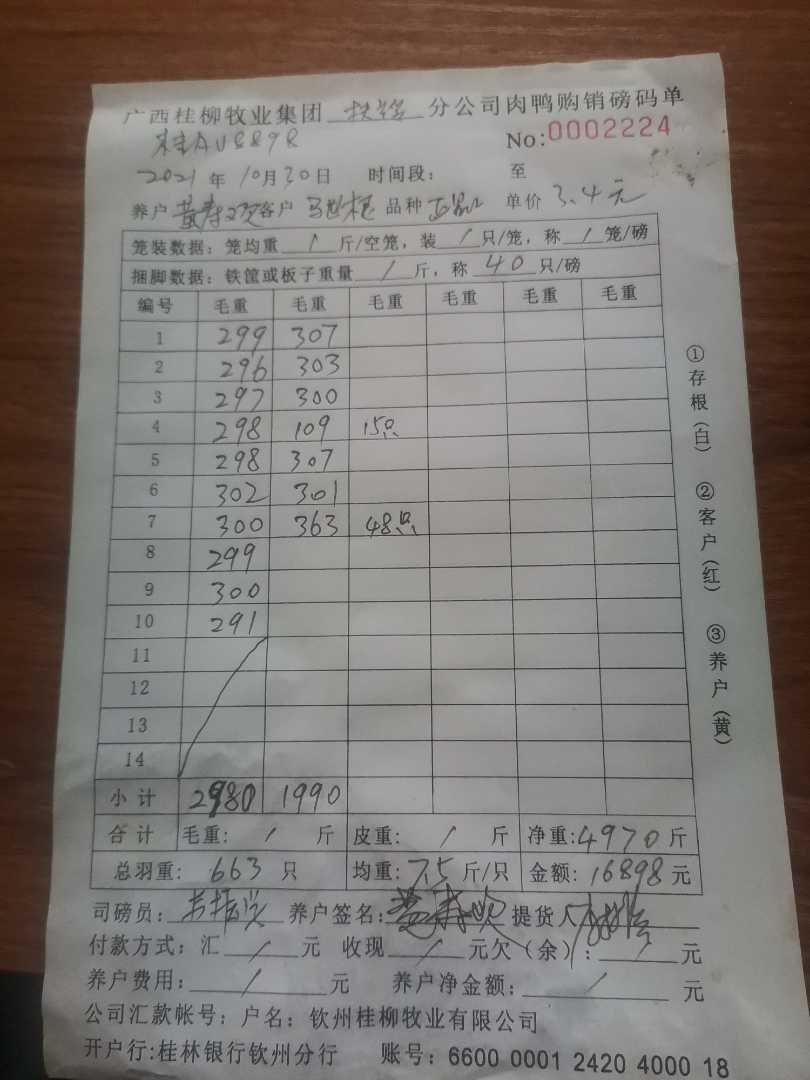 广西桂柳牧业集团 分公司肉鸭购销磅码单
桂AU8898 No:0002224
2021年10月30日 时间段: 至
养户 黄寿欢 客户 马世旺 品种 正品 单价 3.4元
笼装数据: 笼均重 / 斤/空笼, 装 / 只/笼, 称 / 笼/磅
捆脚数据: 铁筐或板子重量 / 斤, 称 40 只/磅
编号 毛重 毛重 毛重 毛重 毛重 毛重
1 299 307
2 296 303
3 297 300
4 298 109 15只
5 298 307
6 302 301
7 300 363 48只
8 299
9 300
10 291
11
12
13
14
小计 2980 1990
合计 毛重: / 斤 皮重: / 斤 净重: 4970 斤
总羽重: 663 只 均重: 7.5 斤/只 金额: 16898 元
司磅员: 养户签名: 提货人
付款方式: 汇 / 元 收现 / 元欠(余): / 元
养户费用: / 元 养户净金额: / 元
公司汇款帐号: 户名: 钦州桂柳牧业有限公司
开户行:桂林银行钦州分行 账号: 6600 0001 2420 4000 18
①存根(白) ②客户(红) ③养户(黄)